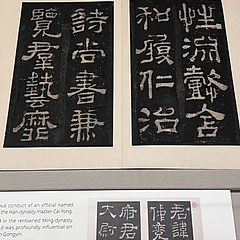 性淵懿含
和履仁治
詩尚書兼
覽群藝靡
君諱
府君
大尉
conduct of an official named
the Han dynasty master Cai Yong.
in the renowned Ming dynasty
was profoundly influential on
Gongyin.